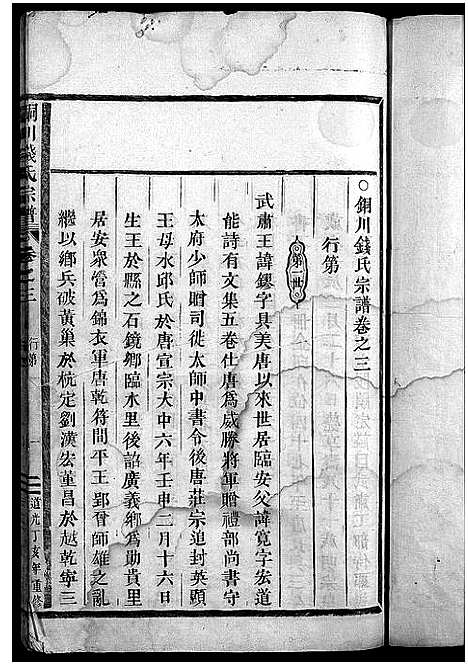 ○銅川錢氏宗譜卷之三
行第
第一世
武肅王諱鏐字具美唐以來世居臨安父諱寬字宏道
能詩有文集五卷仕唐爲威勝將軍贈禮部尚書守
太府少師贈司徙太師中書令後唐莊宗追封英顯
王母水邱氏於唐宣宗大中六年壬申二月十六日
生王於縣之石鏡鄉臨水里後詔廣義鄉爲勛貴里
居安衆營爲錦衣軍唐乾符間平王郢晉師雄之亂
繼以鄉兵破黃巢於杭定劉漢宏董昌於越乾寧三
銅川錢氏宗譜
卷之三
行第
一
道光丁亥年重修